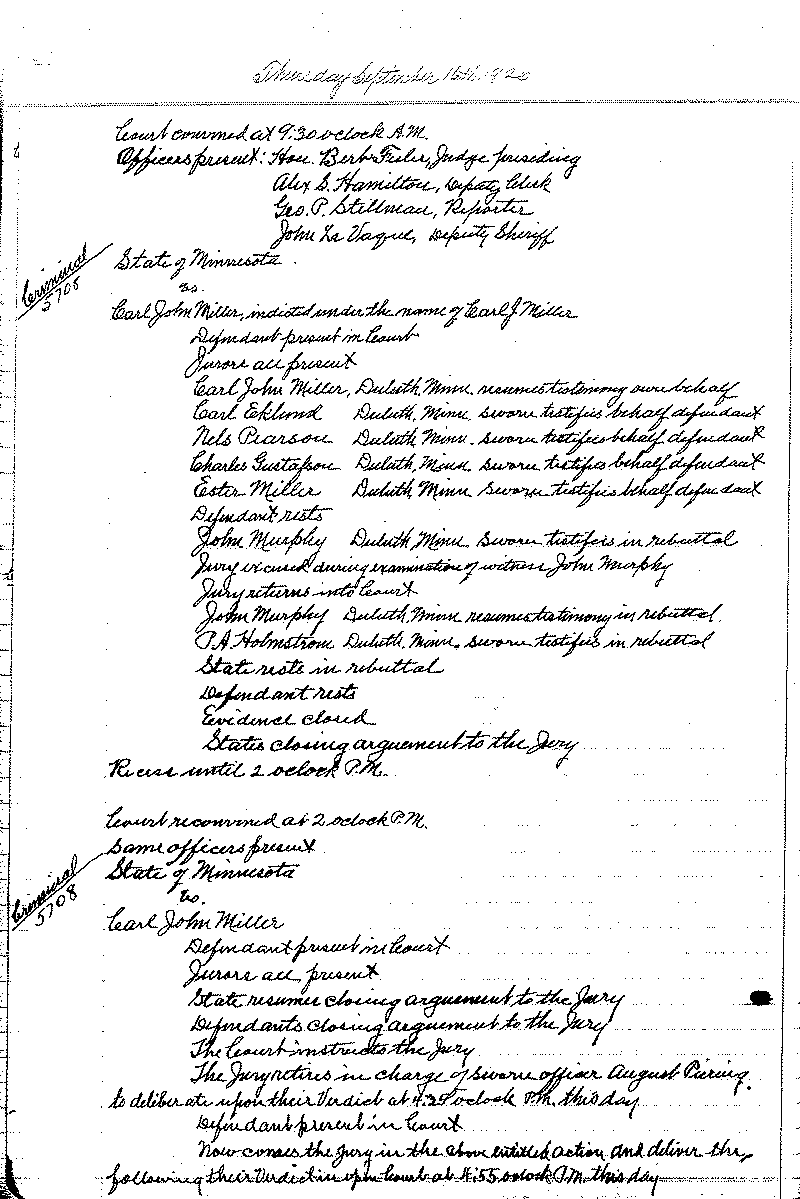 Thursday September 16th 1920
Court convened at 9:30 oclock A.M.
Officers present: Hon. Bert Fesler, Judge presiding
Alex G. Hamilton, Deputy Clerk
Geo. P. Stillman, Reporter
John La Vaque, Deputy Sheriff
Criminal
5708
State of Minnesota
vs.
Carl John Miller, indicted under the name of Carl J Miller
Defendant present in Court
Jurors all present
Carl John Miller, Duluth, Minn. resumes testimony own behalf
Carl Eklund Duluth, Minn. sworn testifies behalf defendant
Nels Pearson Duluth, Minn. sworn testifies behalf defendant
Charles Gustafson Duluth, Minn sworn testifies behalf defendant
Ester Miller Duluth, Minn sworn testifies behalf defendant
Defendant rests
John Murphy Duluth, Minn. sworn testifies in rebuttal
Jury excused during examination of witness John Murphy
Jury returns into Court
John Murphy Duluth, Minn resumes testimony in rebuttal
P.A. Holmstrom Duluth, Minn. sworn testifies in rebuttal
State rests in rebuttal
Defendant rests
Evidence closed
States closing arguement to the Jury
Recess until 2 oclock P.M.
Court reconvened at 2 oclock P.M.
Same officers present
Criminal
5708
State of Minnesota
vs.
Carl John Miller
Defendant present in Court
Jurors all present
State resumes closing arguement to the Jury
Defendants closing arguement to the Jury
The Court instructs the Jury
The Jury retires in charge of sworn officer August
to deliberate upon their Verdict at oclock P.M. this day
Defendant present in Court
Now comes the Jury in the above entitled action and deliver the
following their Verdict in open Court at 4:55 oclock P.M. this day